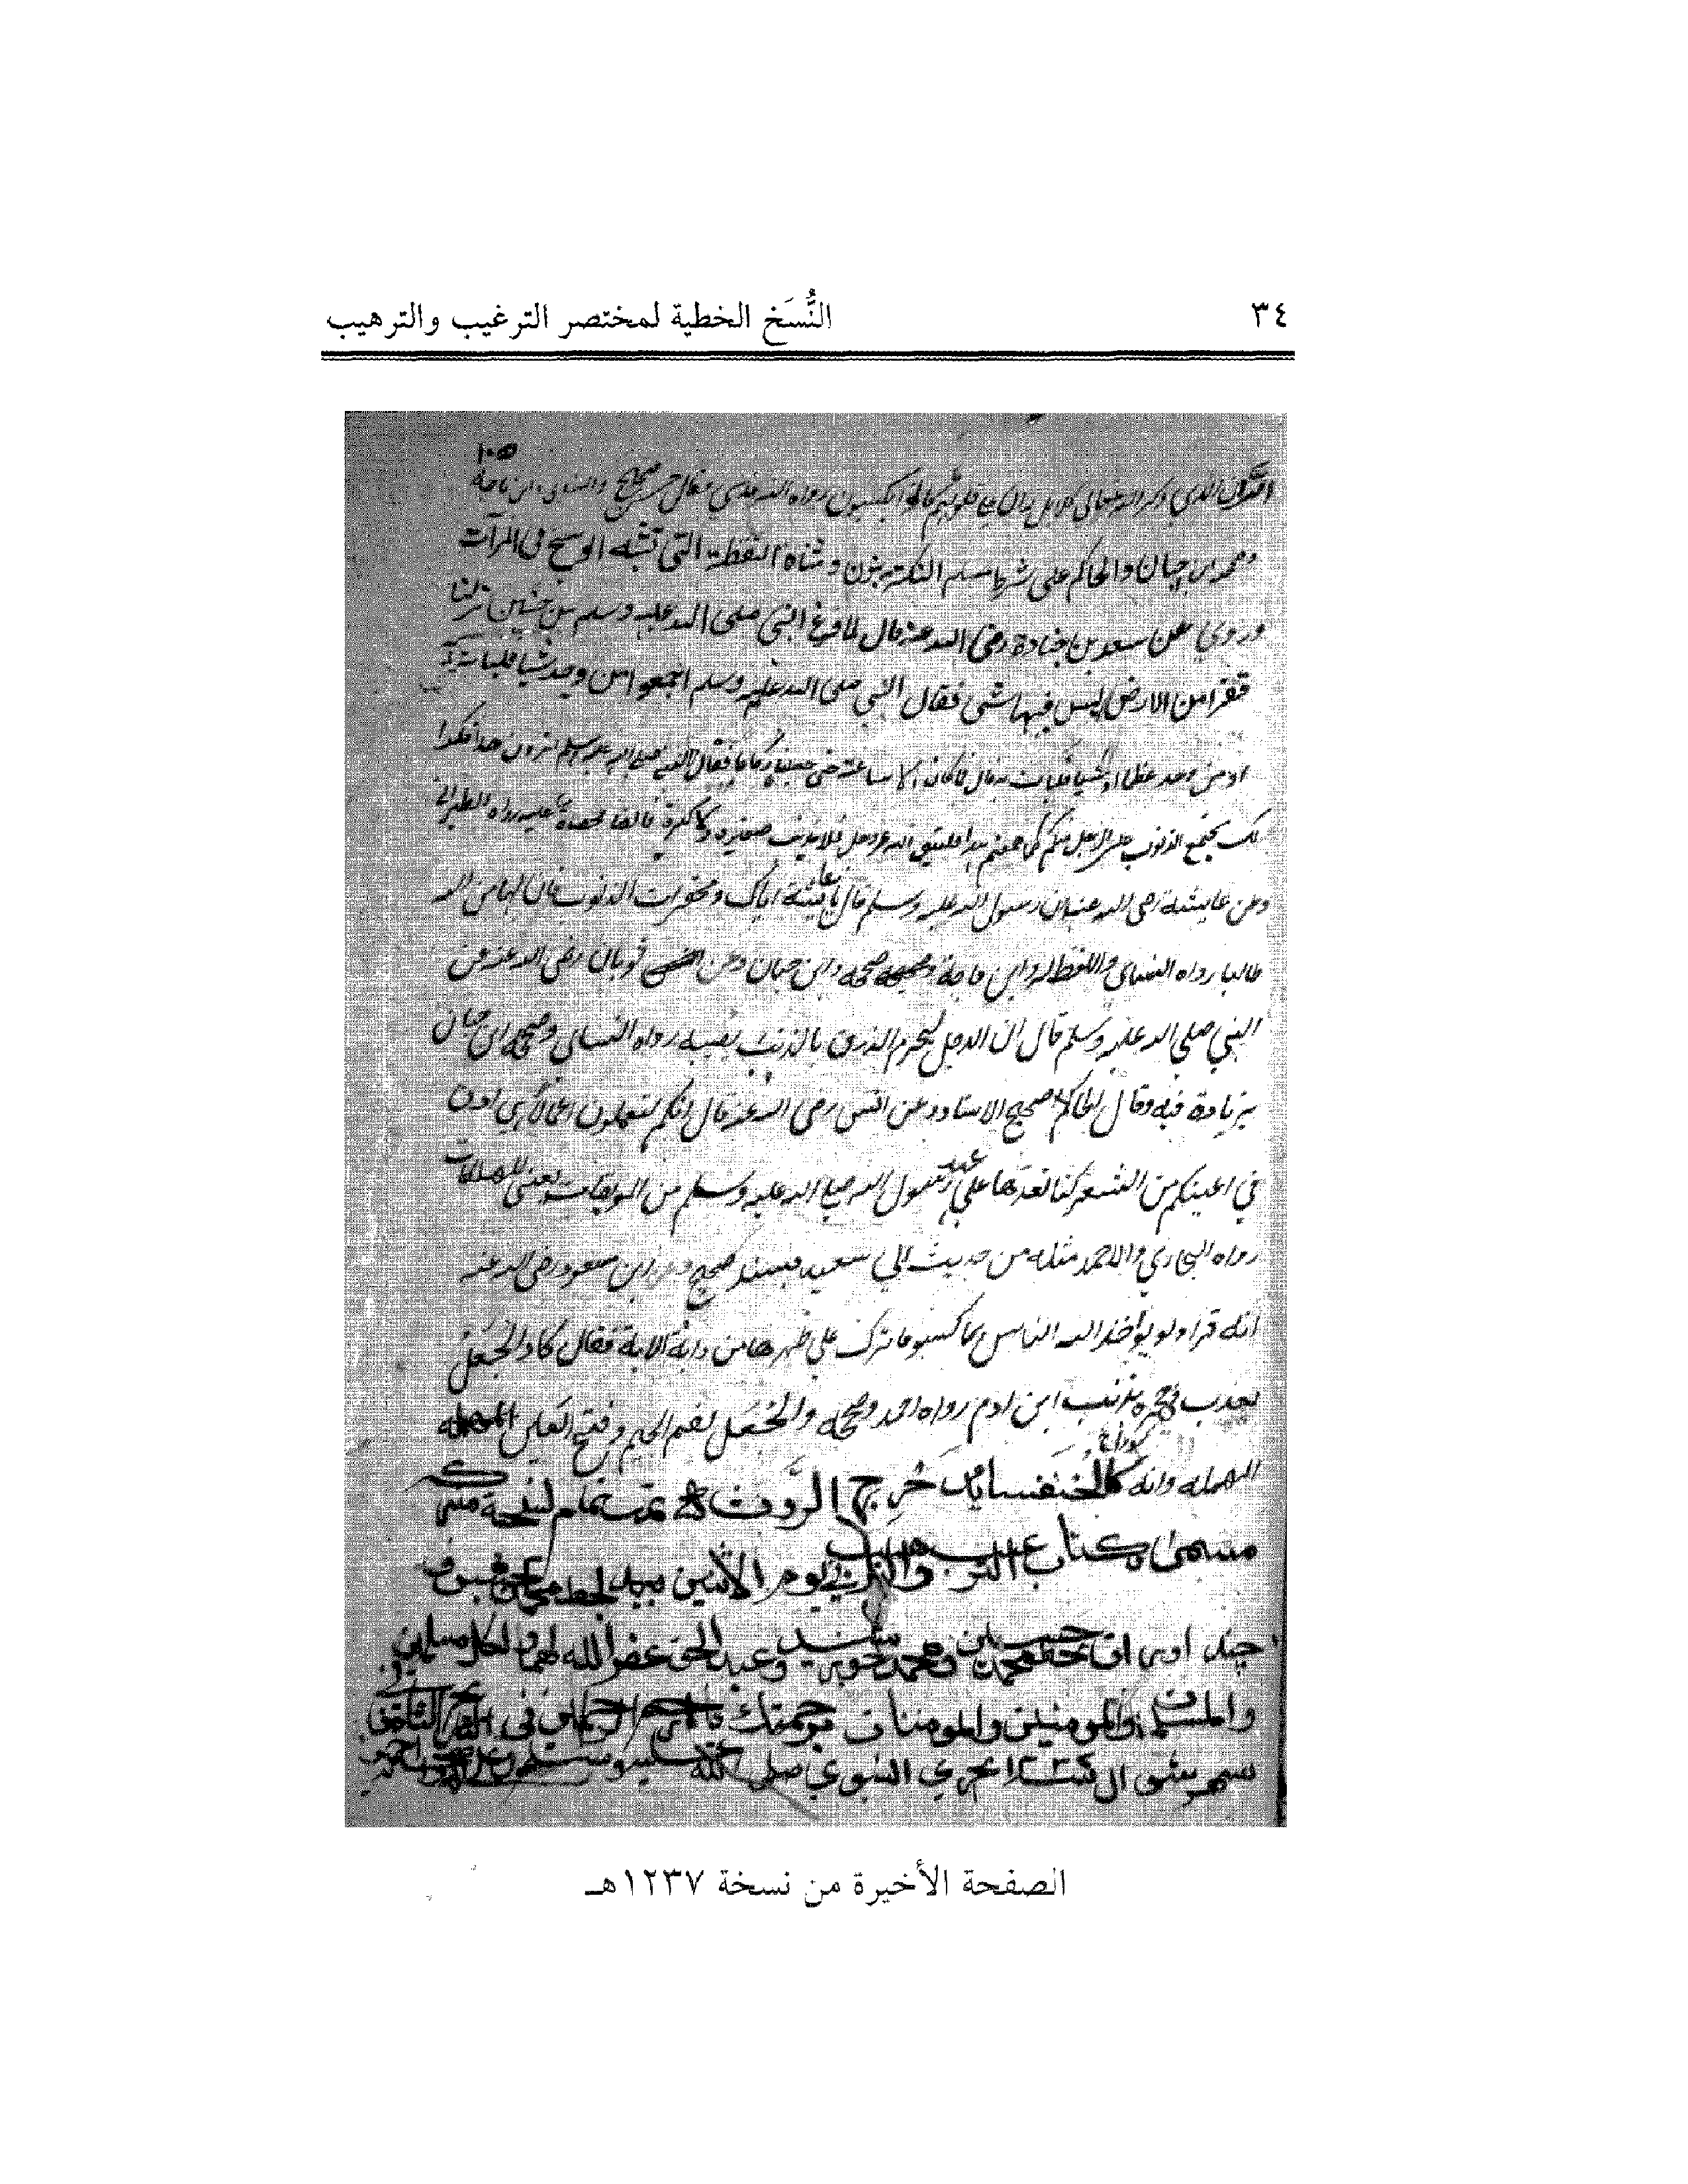 ٣٤
النُّسَخ الخطية لمختصر الترغيب والترهيب
١٠٥
الران الذي ذكر الله تعالى كلا بل ران على قلوبهم ما كانوا يكسبون رواه الترمذي وقال حسن صحيح والنسائي وابن ماجة
وابن حبان والحاكم على شرط مسلم النكتة بنون و مثناه النقطة التي تشبه الوسخ في المرآت
وروي عن سعد بن جنادة رضي الله عنه قال لما فرغ النبي صلى الله عليه وسلم من حنين نزلنا
قفرا من الارض ليس فيها شي فقال النبي صلى الله عليه وسلم اجمعوا من وجد شيا فليات به
او من وجد عظما او شيا فليات به قال فما كان الا ساعة حتى جعلناه ركاما فقال النبي صلى الله عليه وسلم اترون هذا فكذا
لك تجمع الذنوب على الرجل منكم كما جمعتم هذا فليتق الله عز وجل فلا يذنب صغيرة ولا كبيرة فانها محصاة عليه رواه الطبراني
وعن عايشة رضي الله عنها ان رسول الله عليه وسلم قال يا عائشة اياك ومحقرات الذنوب فان لها من الله
طالبا رواه النسائي واللفظ له وابن ماجة وصححه وابن حبان وعن ثوبان رضي الله عنه عن
النبي صلى الله عليه وسلم قال ان الرجل ليحرم الرزق بالذنب يصيبه رواه النسائي وصححه ابن حبان
بزيادة فيه وقال الحاكم صحيح الاسناد وعن انس رضي الله عنه قال انكم لتعملون اعمالا هي ادق
في اعينكم من الشعر كنا نعدها على عهد رسول الله صلى الله عليه وسلم من الموبقات يعني المهلكات
رواه البخاري والاحمد مثله من حديث ابي سعيد بسند صحيح وعن ابن مسعود رضي الله عنه
انه قراء ولو يواخذ الله الناس بما كسبو ما ترك على ظهرها من دابة الاية فقال كاد الجعل
يعذب في حجره بذنب ابن ادم رواه احمد وصححه والجعل بضم الجيم وفتح العين المهمله
المهمله وانه كالخنفسا يدحرج الروث تمت تمام
مسمى كتاب الترغيب والترهيب في يوم الاثنين بيد
محمد حسين ومحمد وعبد الحق غفر الله لهما ولكل مسلمين
والمسلمات والمومنين والمومنات برحمتك يا ارحم الراحمين في
النبوي صلى الله عليه وسلم
الصفحة الأخيرة من نسخة ١٢٣٧هـ